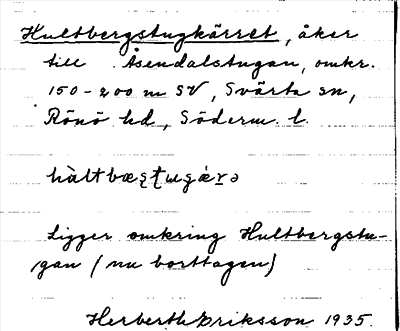 Hultbergstugkärret, åker
till Åsendalstugan, omkr.
150-200 m SV, Svärta sn,
Rönö hd, Söderm. l.
Ligger omkring Hultbergstu-
gan (nu borttagen)
Herberth Eriksson 1935.